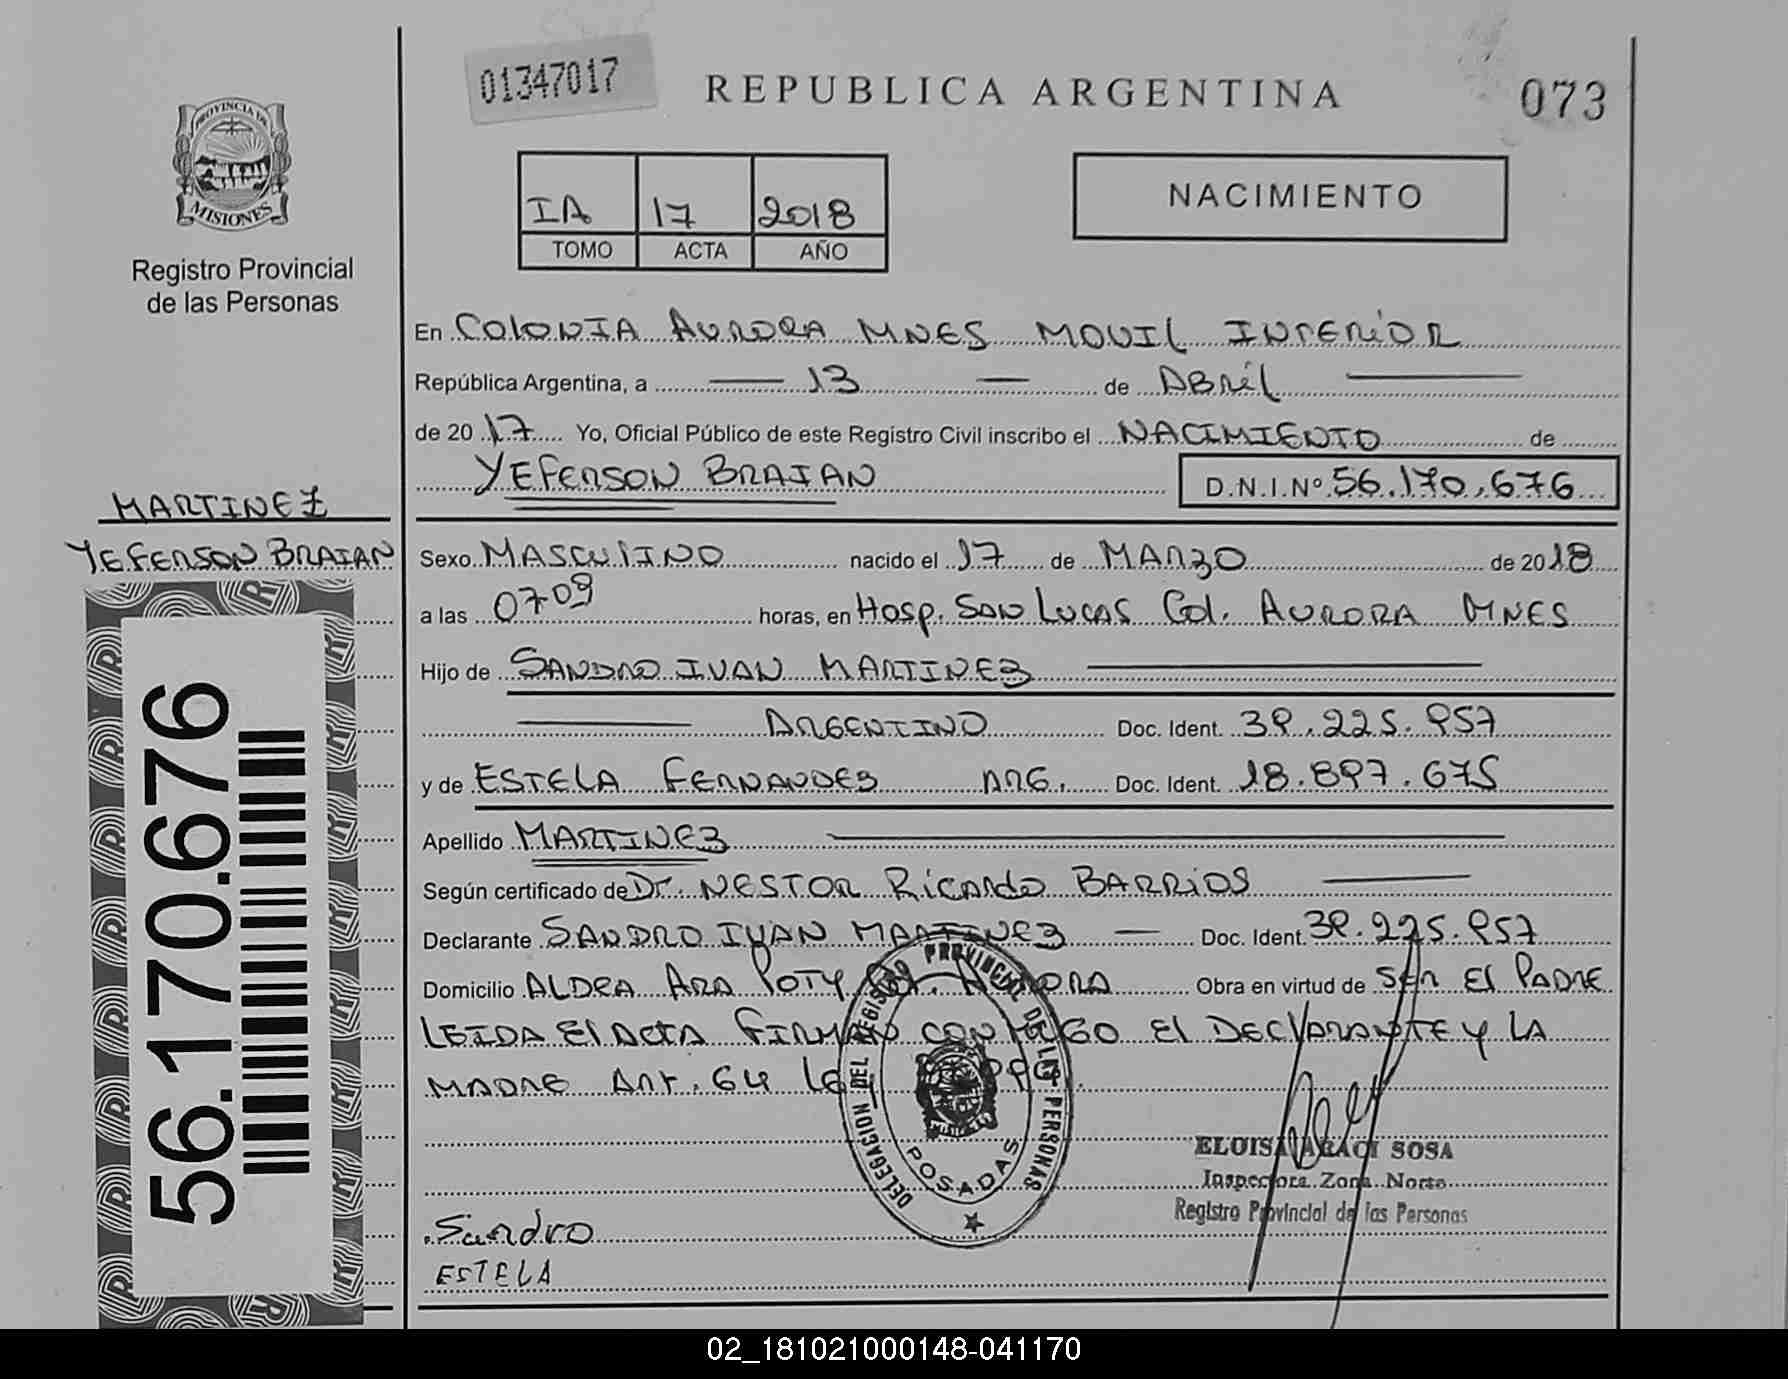 01347017
REPUBLICA ARGENTINA
073
PROVINCIA DE
MISIONES
Registro Provincial
de las Personas
IA 17 2018
TOMO ACTA AÑO
NACIMIENTO
En COLONIA AURORA MNES MOVIL INTERIOR
República Argentina, a 13 de ABRIL
de 2017 Yo, Oficial Público de este Registro Civil inscribo el NACIMIENTO de
YEFERSON BRAIAN D.N.I.Nº 56.170.676
MARTINEZ
YEFERSON BRAIAN
56.170.676
Sexo MASCULINO nacido el 17 de MARZO de 2018
a las 07 09 horas, en HOSP. SAN LUCAS Col. AURORA MNES
Hijo de SANDRO IVAN MARTINEZ
ARGENTINO Doc. Ident. 39.225.957
y de ESTELA FERNANDEZ ARG. Doc. Ident. 18.897.675
Apellido MARTINEZ
Según certificado de Dr. NESTOR RICARDO BARRIOS
Declarante SANDRO IVAN MARTINEZ Doc. Ident. 39.225.957
Domicilio ALDEA ARA POTY Col. AURORA Obra en virtud de SER El PADRE
LEIDA El ACTA FIRMAN CONMIGO El DEClARANTE y LA
MADRE ART. 64
DELEGACION DEL REGISTRO PROVINCIAL DE LAS PERSONAS
POSADAS
ELOISA ARACI SOSA
Inspectora Zona Norte
Registro Provincial de las Personas
Sandro
ESTELA
02_181021000148-041170